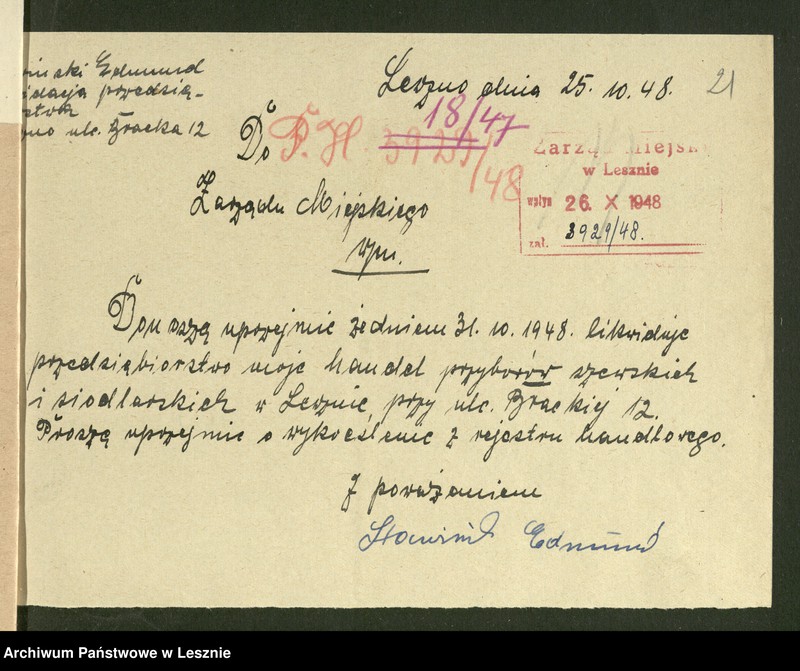 Leszno dnia 25. 10. 48. 21
inski Edmund
idacja przedsię-
orstwa
zno ulc. Bracka 12
18/47
Do F. H. 3929/48
Zarząd Miejsk
w Lesznie
wpły 26. X 1948
zał. 3929/48.
Zarządu Miejskiego
wjm.
Donoszę uprzejmie żedniem 31. 10. 1948. likwiduję
przedsiębiorstwo moje handel przyborów szewskich
i siodlarskich w Lesznie, przy ulc. Brackiej 12.
Proszę uprzejmie o wykreślenie z rejestru handlowego.
Z poważaniem
Edmund
Archiwum Państwowe w Lesznie